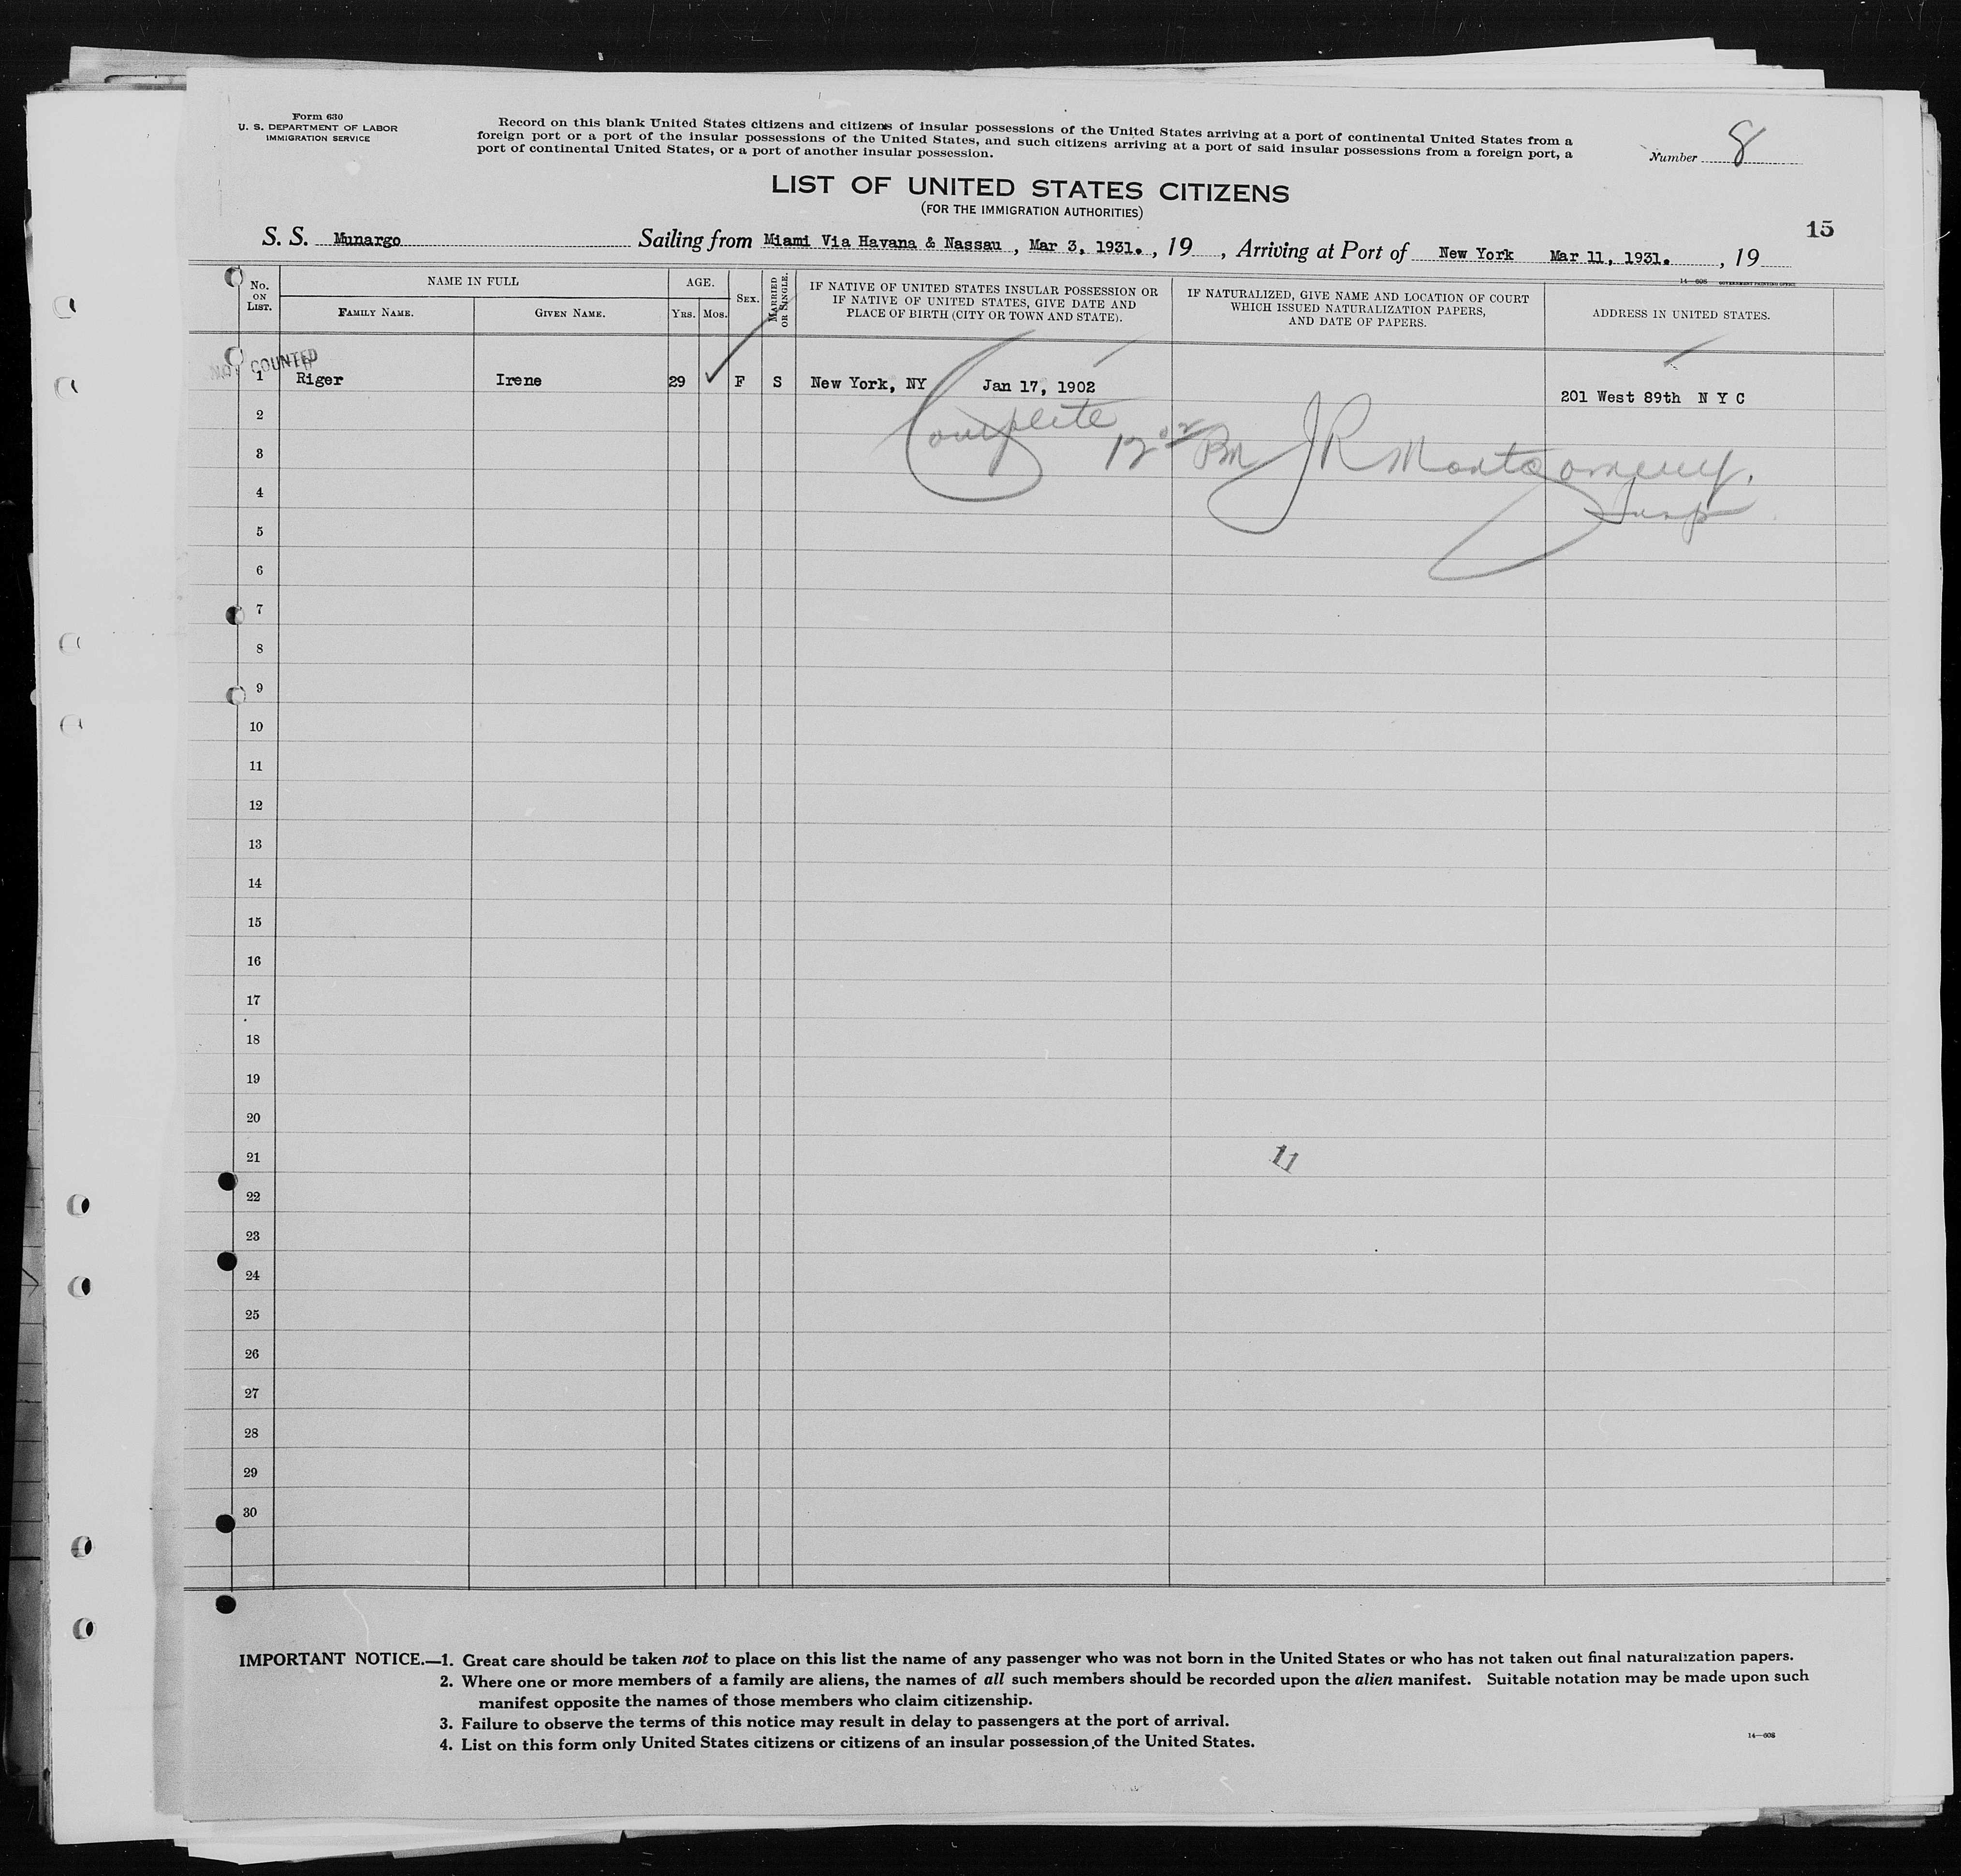 Form 630
U. S. DEPARTMENT OF LABOR
IMMIGRATION SERVICE
Record on this blank United States citizens and citizens of insular possessions of the United States arriving at a port of continental United States from a
foreign port or a port of the insular possessions of the United States, and such citizens arriving at a port of said insular possessions from a foreign port, a
port of continental United States, or a port of another insular possession.
Number 8
LIST OF UNITED STATES CITIZENS
(FOR THE IMMIGRATION AUTHORITIES)
15
S. S. Munargo Sailing from Miami Via Havana & Nassau , Mar 3, 1931. , 19 , Arriving at Port of New York Mar 11, 1931. , 19
14—608 GOVERNMENT PRINTING OFFICE
No. ON LIST.
NAME IN FULL
FAMILY NAME.
GIVEN NAME.
AGE.
YRS.
MOS.
SEX.
MARRIED OR SINGLE.
IF NATIVE OF UNITED STATES INSULAR POSSESSION OR
IF NATIVE OF UNITED STATES, GIVE DATE AND
PLACE OF BIRTH (CITY OR TOWN AND STATE).
IF NATURALIZED, GIVE NAME AND LOCATION OF COURT
WHICH ISSUED NATURALIZATION PAPERS,
AND DATE OF PAPERS.
ADDRESS IN UNITED STATES.
NOT COUNTED
1 Riger Irene 29 ✓ F S New York, NY Jan 17, 1902 201 West 89th N Y C
2
Complete
3
12 02 Pm J R Montgomery.
4
Insp
5
6
7
8
9
10
11
12
13
14
15
16
17
18
19
20
21
11
22
23
24
25
26
27
28
29
30
IMPORTANT NOTICE.—1. Great care should be taken not to place on this list the name of any passenger who was not born in the United States or who has not taken out final naturalization papers.
2. Where one or more members of a family are aliens, the names of all such members should be recorded upon the alien manifest. Suitable notation may be made upon such
manifest opposite the names of those members who claim citizenship.
3. Failure to observe the terms of this notice may result in delay to passengers at the port of arrival.
4. List on this form only United States citizens or citizens of an insular possession of the United States.
14—608